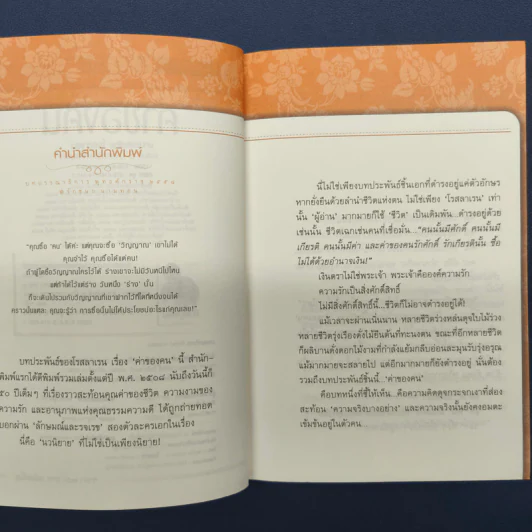 คำนำสำนักพิมพ์
"คุณซื้อ 'คน' ได้ค่ะ แต่คุณจะซื้อ 'วิญญาณ' เขาไม่ได้
คุณว่าไว้ คุณซื้อได้แต่คน!
ถ้าผู้ใดซื้อวิญญาณใครไว้ได้ ร่างเขาจะไม่มีวันหนีไปไหน
แต่ถ้าได้ไว้แต่ร่าง วันหนึ่ง 'ร่าง' นั้น
คราวนั้นแหละ คุณจะรู้ว่า การซื้อนั้นไม่ได้ประโยชน์อะไรแก่คุณเลย!"
บทประพันธ์ของโรสลาเรน เรื่อง 'ค่าของคน' นี้ สำนัก-
พิมพ์แรกได้ตีพิมพ์รวมเล่มตั้งแต่ปี พ.ศ. ๒๕๐๘ นับถึงวันนี้ก็
๕๐ ปีเต็มๆ ที่เรื่องราวสะท้อนคุณค่าของชีวิต ความงามของ
ความรัก และอานุภาพแห่งคุณธรรมความดี ได้ถูกถ่ายทอด
บอกผ่าน 'ลักษมณ์และรจเรข' สองตัวละครเอกในเรื่อง
นี่คือ 'นวนิยาย' ที่ไม่ใช่เป็นเพียงนิยาย!
นี่ไม่ใช่เพียงบทประพันธ์ชิ้นเอกที่ดำรงอยู่แค่ตัวอักษร
หากยั่งยืนด้วยลำนำชีวิตแห่งตน ไม่ใช่เพียง 'โรสลาเรน' เท่า
นั้น 'ผู้อ่าน' มากมายก็ใช้ 'ชีวิต' เป็นเดิมพัน...ดำรงอยู่ด้วย
เช่นนั้น ชีวิตเฉกเช่นคนที่เชื่อมั่น..."คนนั้นมีศักดิ์ คนนั้นมี
เกียรติ คนนั้นมีค่า และค่าของคนรักศักดิ์ รักเกียรตินั้น ซื้อ
ไม่ได้ด้วยอำนาจเงิน!"
เงินตราไม่ใช่พระเจ้า พระเจ้าคือองค์ความรัก
ความรักเป็นสิ่งศักดิ์สิทธิ์
ไม่มีสิ่งศักดิ์สิทธิ์นี้...ชีวิตก็ไม่อาจดำรงอยู่ได้!
แม้เวลาจะผ่านเนิ่นนาน หลายชีวิตร่วงหล่นดุจใบไม้ร่วง
หลายชีวิตรุ่งเรืองดั่งไม้ยืนต้นที่ทะนงตน ขณะที่อีกหลายชีวิต
ก็ผลิบานดั่งดอกไม้งามที่กำลังแย้มกลีบอ่อนละมุนรับรุ่งอรุณ
แม้มากมายจะสลายไป แต่อีกมากมายก็ยังดำรงอยู่ นั่นต้อง
รวมถึงบทประพันธ์ชิ้นนี้...'ค่าของคน'
คือบทหนึ่งที่ชี้ให้เห็น...คือความคิดดุจกระจกเงาที่ส่อง
สะท้อน 'ความจริงบางอย่าง' และความจริงนั้นยังคงอมตะ
เข้มข้นอยู่ในตัวคน